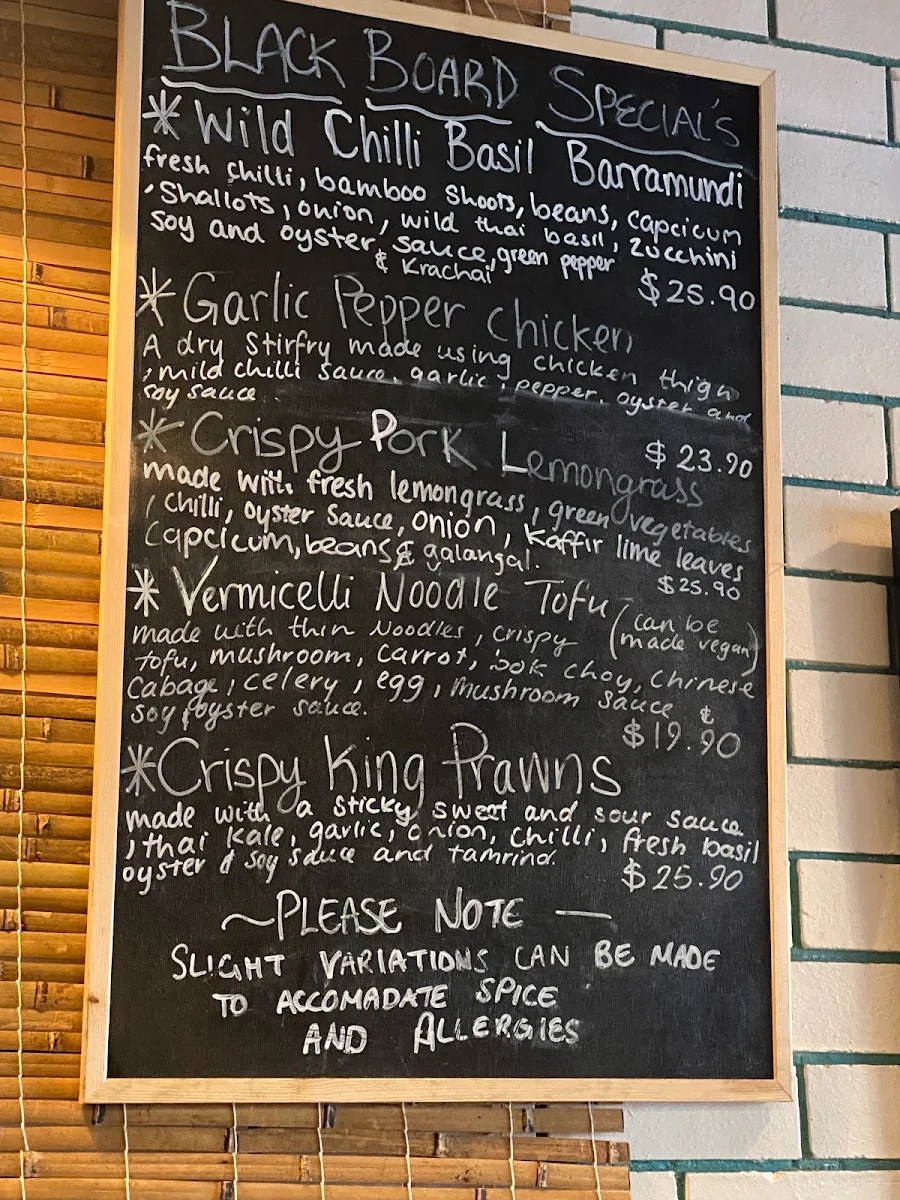 BLACK BOARD SPECIAL'S
* Wild Chilli Basil Barramundi
fresh chilli, bamboo shoots, beans, capcicum
, Shallots, onion, wild thai basil, zucchini
soy and oyster sauce, green pepper
& Krachai
$25.90
* Garlic Pepper Chicken
A dry Stirfry made using chicken thigh
, mild chilli sauce, garlic, pepper, oyster and
soy sauce.
$23.90
* Crispy Pork Lemongrass
made with fresh lemongrass, green vegetables
, chilli, oyster sauce, onion, kaffir lime leaves
capcicum, beans & galangal.
$25.90
* Vermicelli Noodle Tofu (can be
made vegan)
made with thin Noodles, crispy
tofu, mushroom, carrot, bok choy, chinese
Cabage, celery, egg, mushroom sauce &
soy, oyster sauce.
$19.90
* Crispy King Prawns
made with a sticky sweet and sour sauce
, thai kale, garlic, onion, chilli, fresh basil
oyster & soy sauce and tamrind.
$25.90
~ PLEASE NOTE —
SLIGHT VARIATIONS CAN BE MADE
TO ACCOMADATE SPICE
AND ALLERGIES